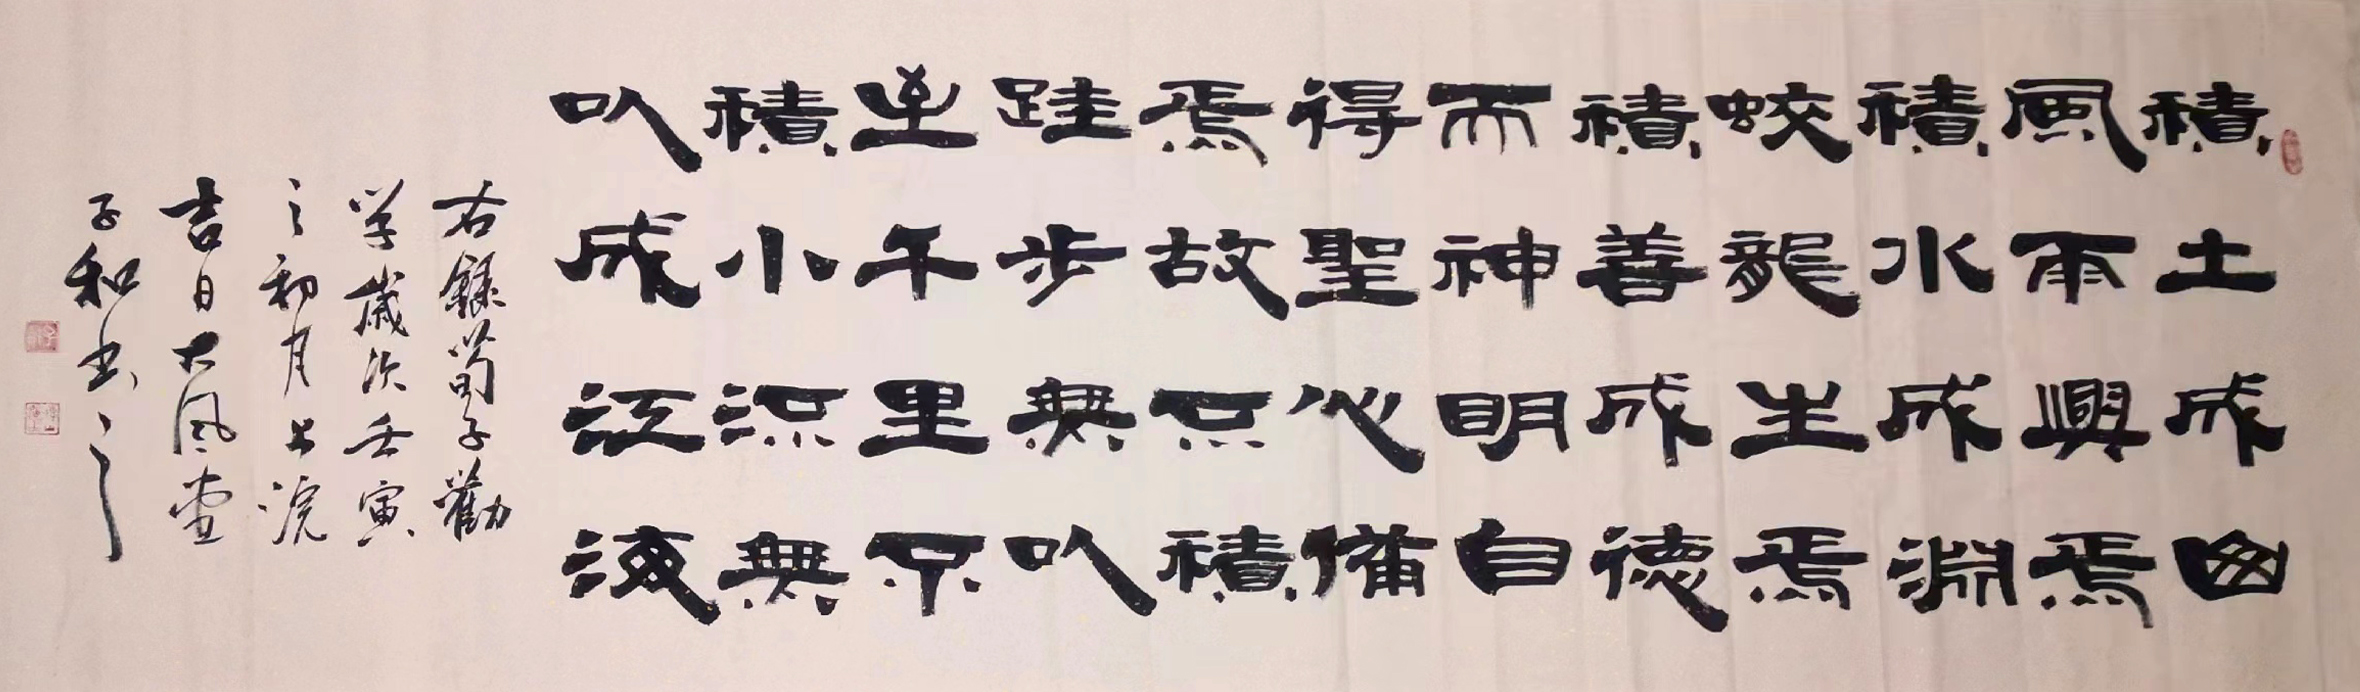 積土成山
風雨興焉
積水成淵
蛟龍生焉
積善成德
而神明自
得聖心備
焉故不積
跬步無以
至千里不
積小流無
以成江海
右録荀子勸
学歲次壬寅
之初月上浣
吉日大風堂
子和书之